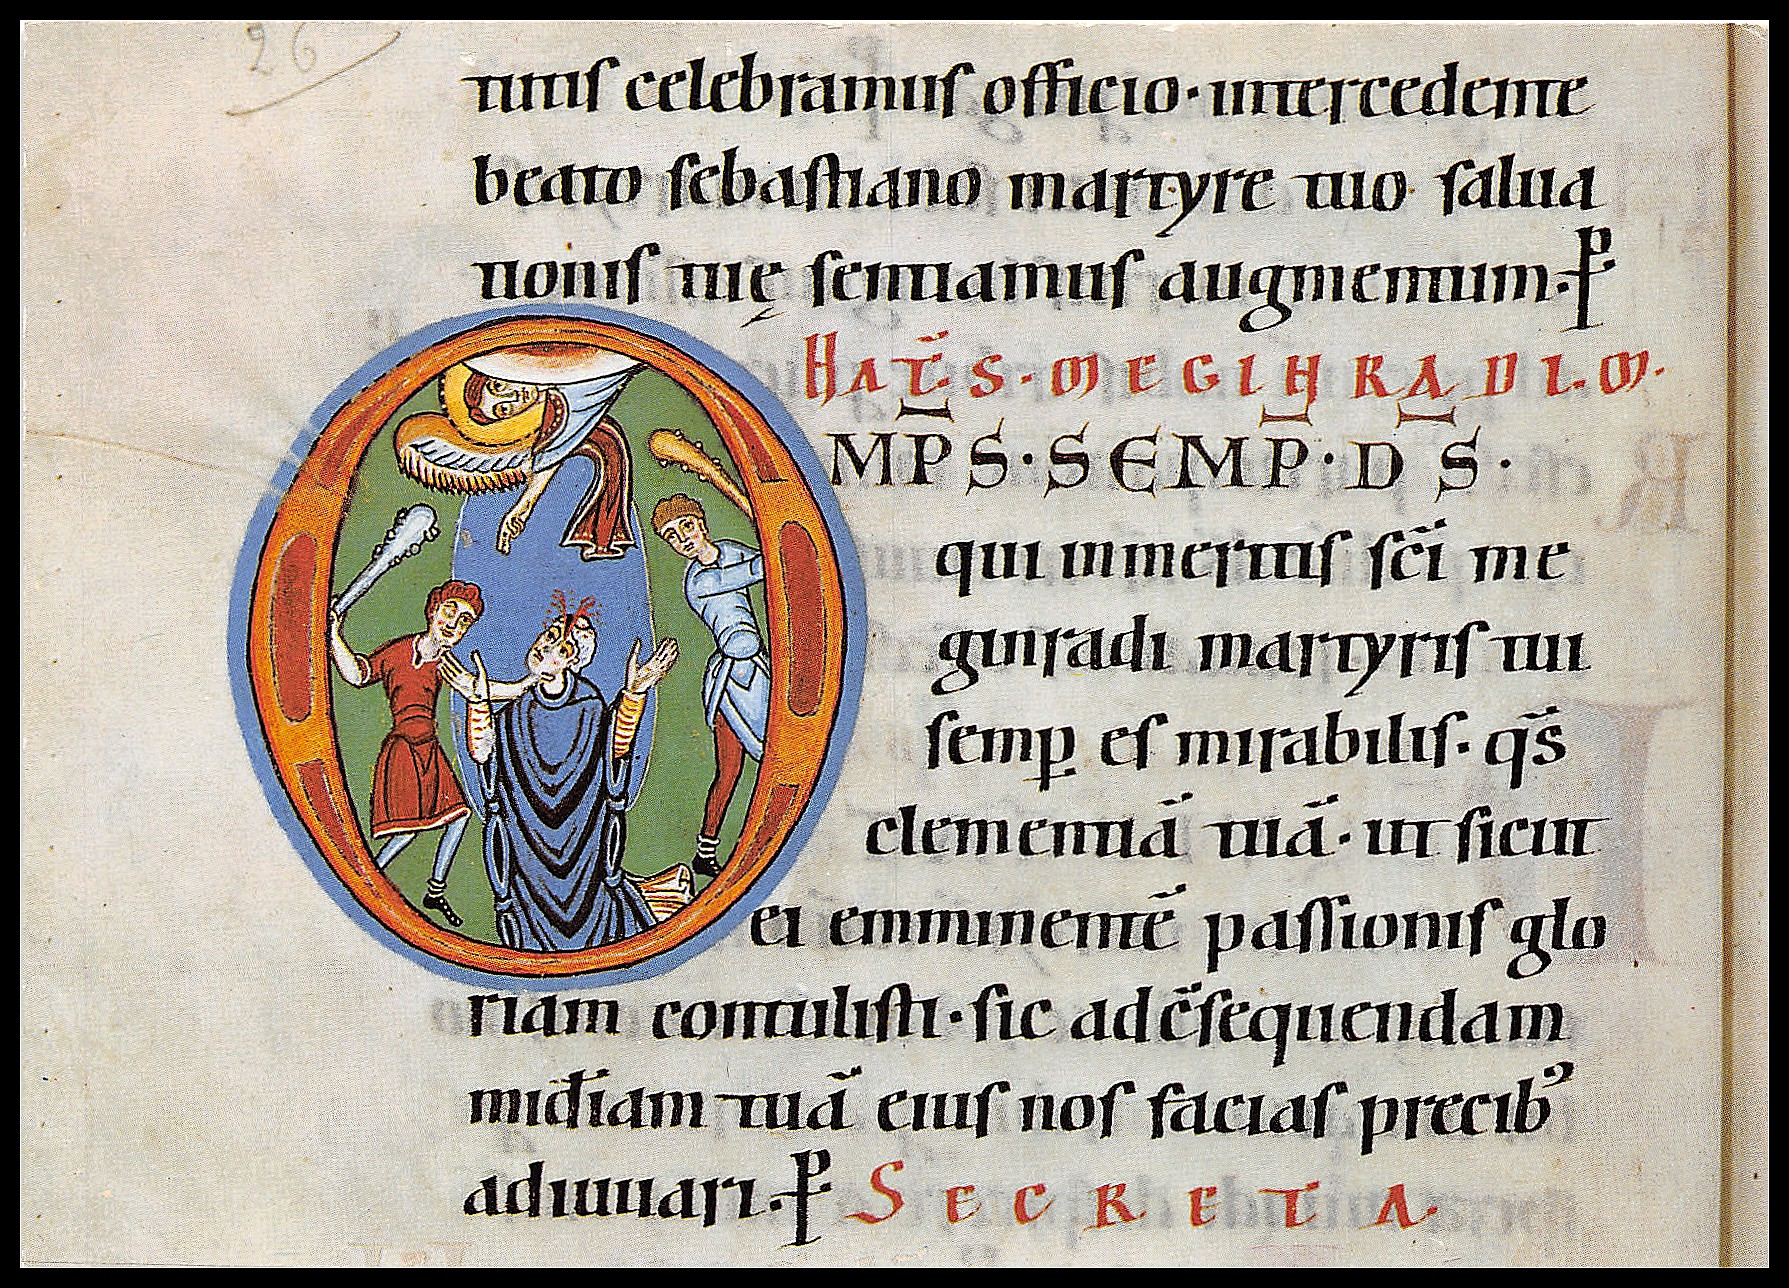 26
tuus celebramus officio · intercedente
beato sebastiano martyre tuo salua
tionis tuę sentiamus augmentum · ꝑ
HAT̄S · MEGIHRADI · M ·
OMP̅S · SEMP̅ · D̅S ·
qui inmeritis sc̄i me
ginradi martyris tui
semꝑ es mirabilis · qs̄
clementiā tuā · ut sicut
ei emminentē passionis glo
riam contulisti · sic adc̄sequendam
mid̄iam tuā eius nos facias precibꝰ
adiuuari · ꝑ SECRETA ·